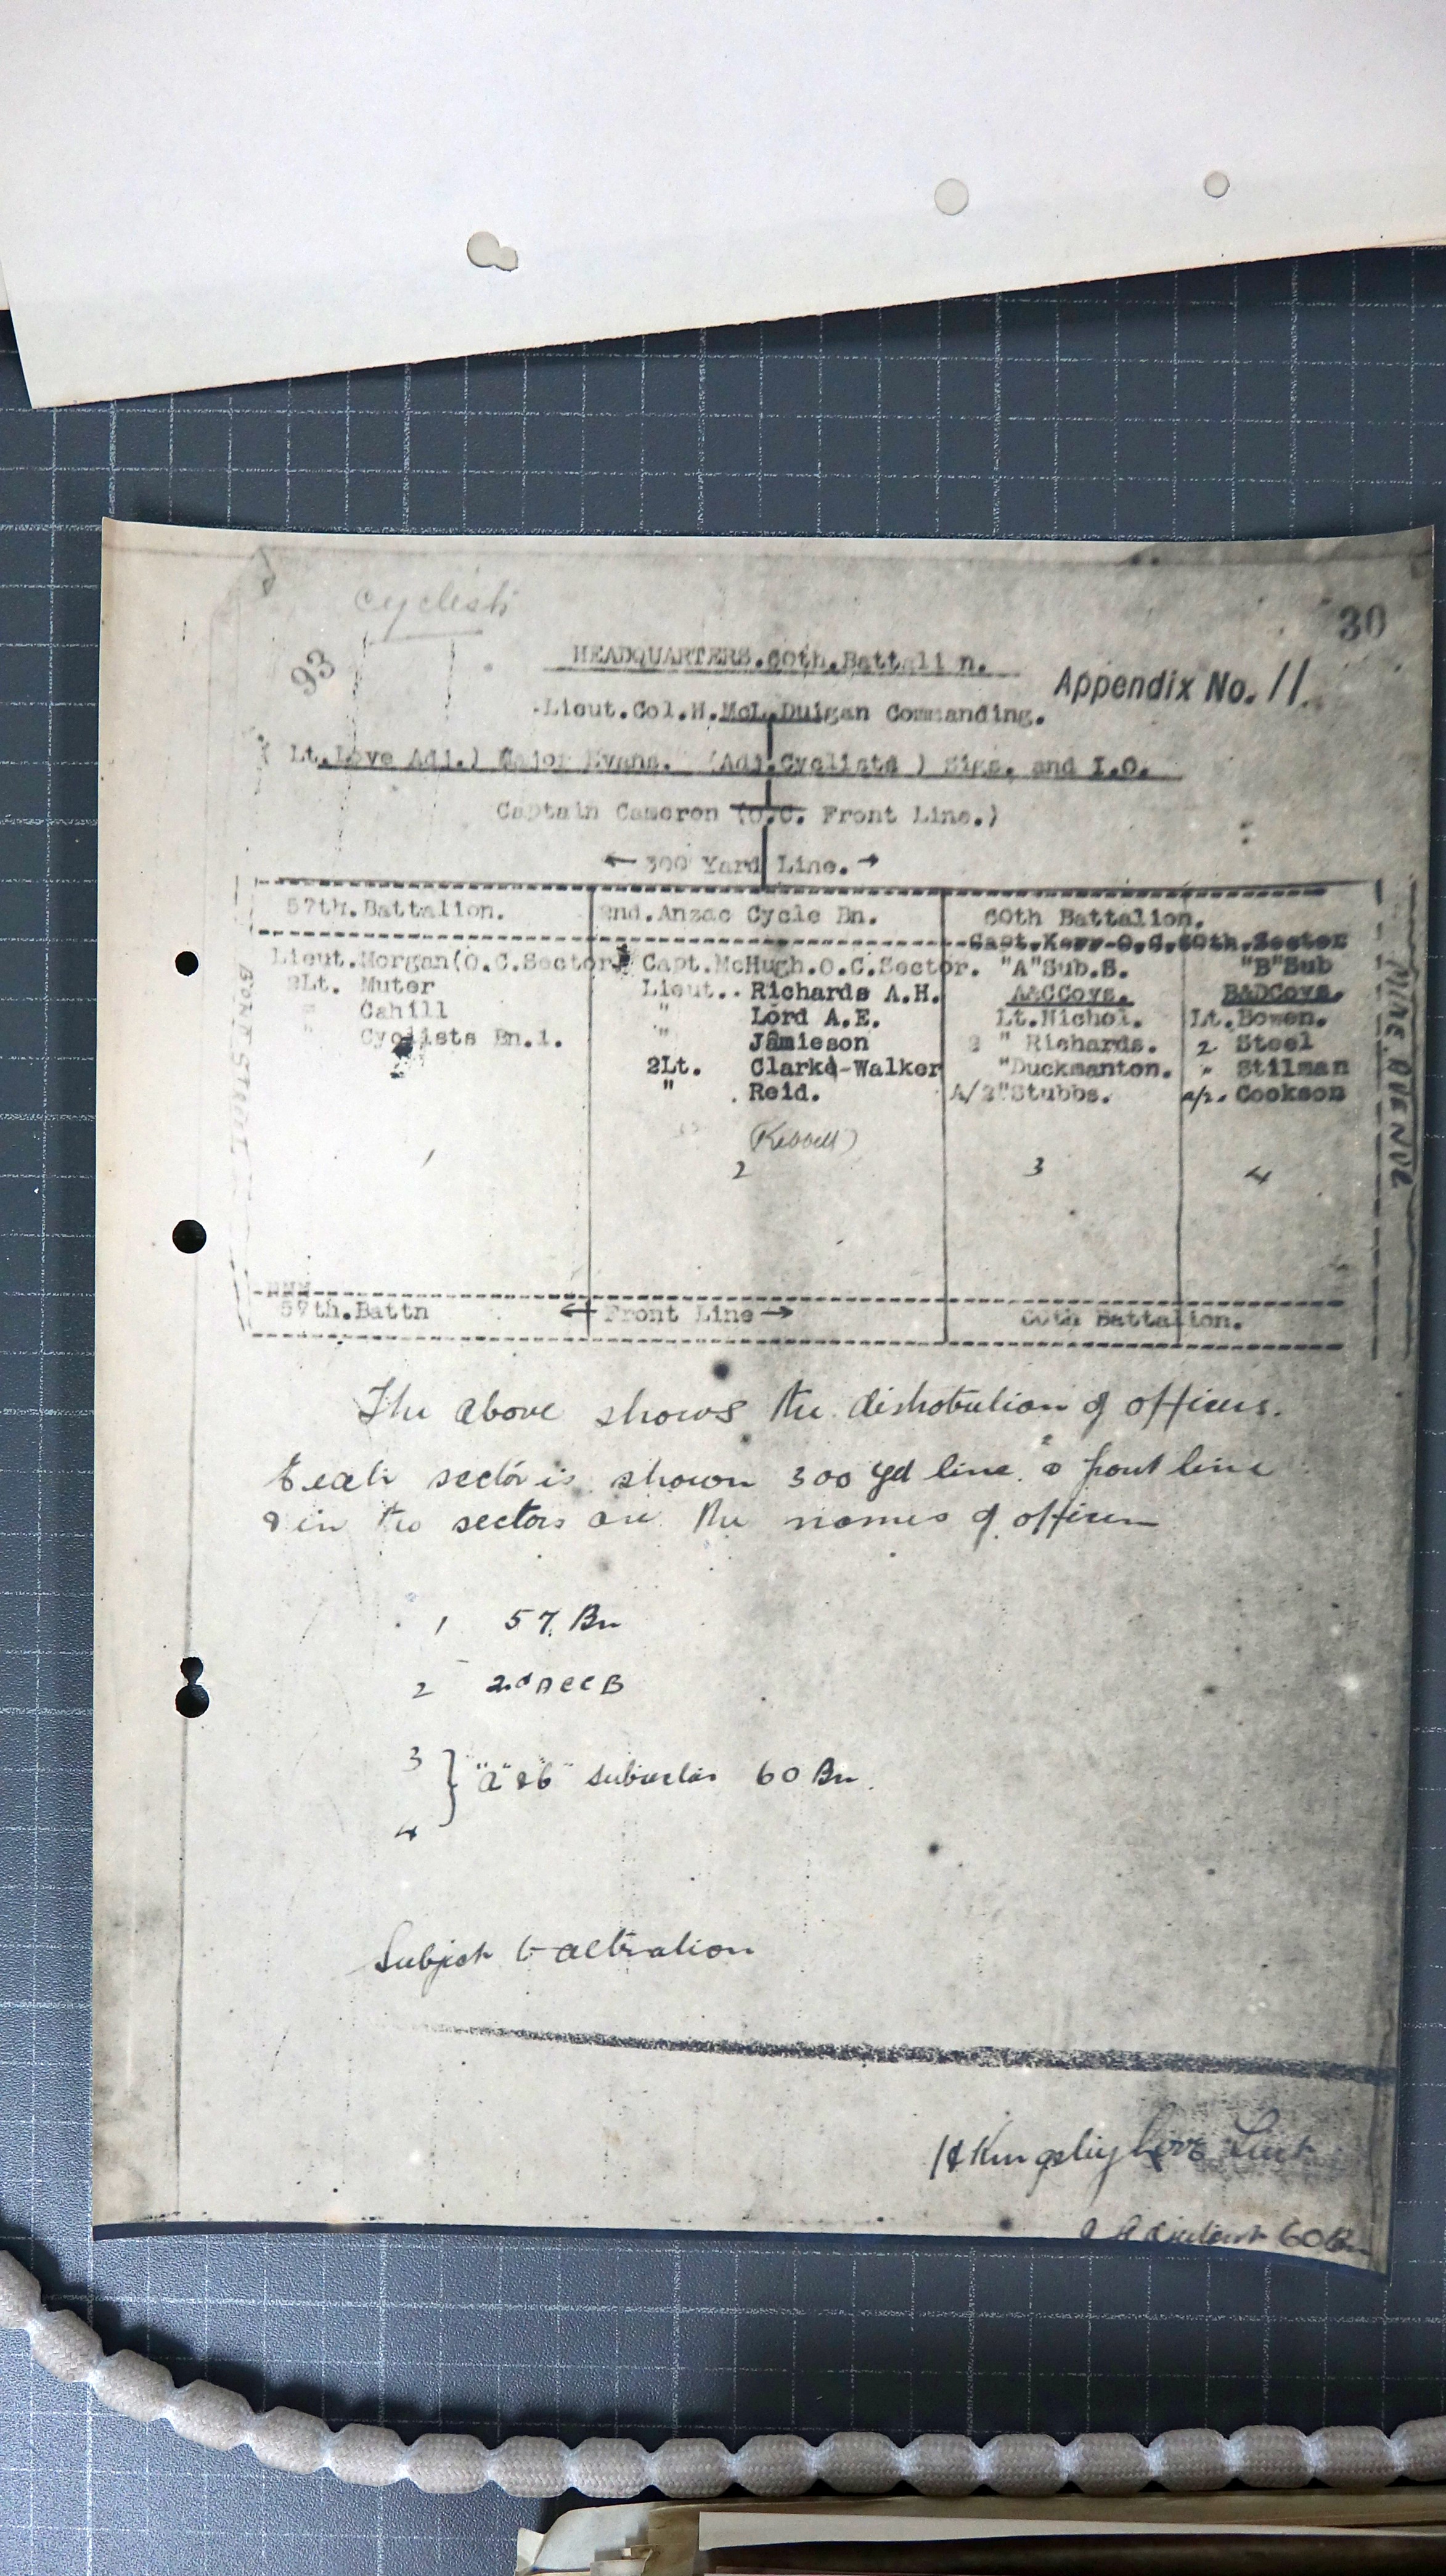 cyclists
30
93
HEADQUARTERS.60th.Battali n.
Appendix No. 11
Lieut.Col.H.McL.Duigan Commanding.
( Lt.Love Adj.) Major Evans. (Adj.Cyclists ) Sigs. and I.O.
Captain Cameron (O.C. Front Line.)
← 300 Yard Line. →
57th.Battalion. 2nd.Anzac Cycle Bn. 60th Battalion.
Capt.Kerr-O.C.60th.Sector
Lieut.Morgan(O.C.Sector) Capt.McHugh.O.C.Sector. "A"Sub.S. "B"Sub
2Lt. Muter Lieut.. Richards A.H. A&CCoys. B&DCoys.
" Cahill " Lord A.E. Lt.Nichol. Lt.Bowen.
" Cyclists Bn.1. " Jamieson 2 " Richards. 2 Steel
2Lt. Clarke-Walker "Duckmanton. " Stilman
" Reid. A/2"Stubbs. a/2. Cookson
1 2 3 4
MINE AVENUE
57th.Battn ← Front Line → 60th Battalion.
The above shows the distribution of officers.
Each sector is shown 300 yd line & front line
& in the sectors are the names of officers
1 57 Bn
2 2nd ACCB
3 } "A" & "B" subsector 60 Bn.
4
Subject to alteration
H Kingsley Love Lieut
Adjutant 60 Bn